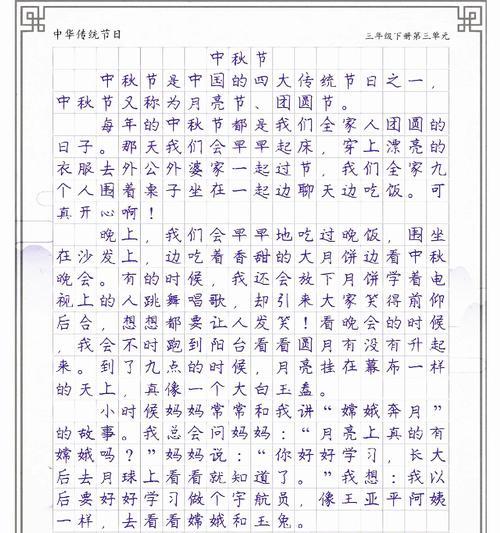 中华传统节日
三年级下册第三单元
中秋节
中秋节是中国的四大传统节日之一，
中秋节又称为月亮节、团圆节。
每年的中秋节都是我们全家人团圆的
日子。那天我们会早早起床，穿上漂亮的
衣服去外公外婆家一起过节，我们全家九
个人围着桌子坐在一起边聊天边吃饭。可
真开心啊！
晚上，我们会早早地吃过晚饭，围坐
在沙发上，边吃着香甜的大月饼边看中秋
晚会。有的时候，我还会放下月饼学着电
视上的人跳舞唱歌，却引来大家笑得前仰
后合，想想都要让人发笑！看晚会的时候
，我会不时跑到阳台看看圆月有没有升起
来。到了九点的时候，月亮挂在幕布一样
的天上，真像一个大白玉盘。
小时候妈妈常常和我讲“嫦娥奔月”
的故事。我总会问妈妈：“月亮上真的有
嫦娥吗？”妈妈说：“你好好学习，长大
后去月球上看看就知道了。”我想：我以
后要好好学习做个宇航员，像王亚平阿姨
一样，去看看嫦娥和玉兔。